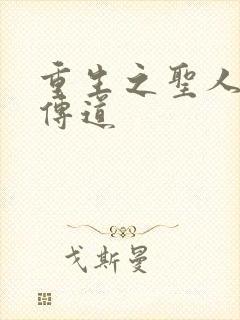 重生之聖人
傳道
戈斯曼